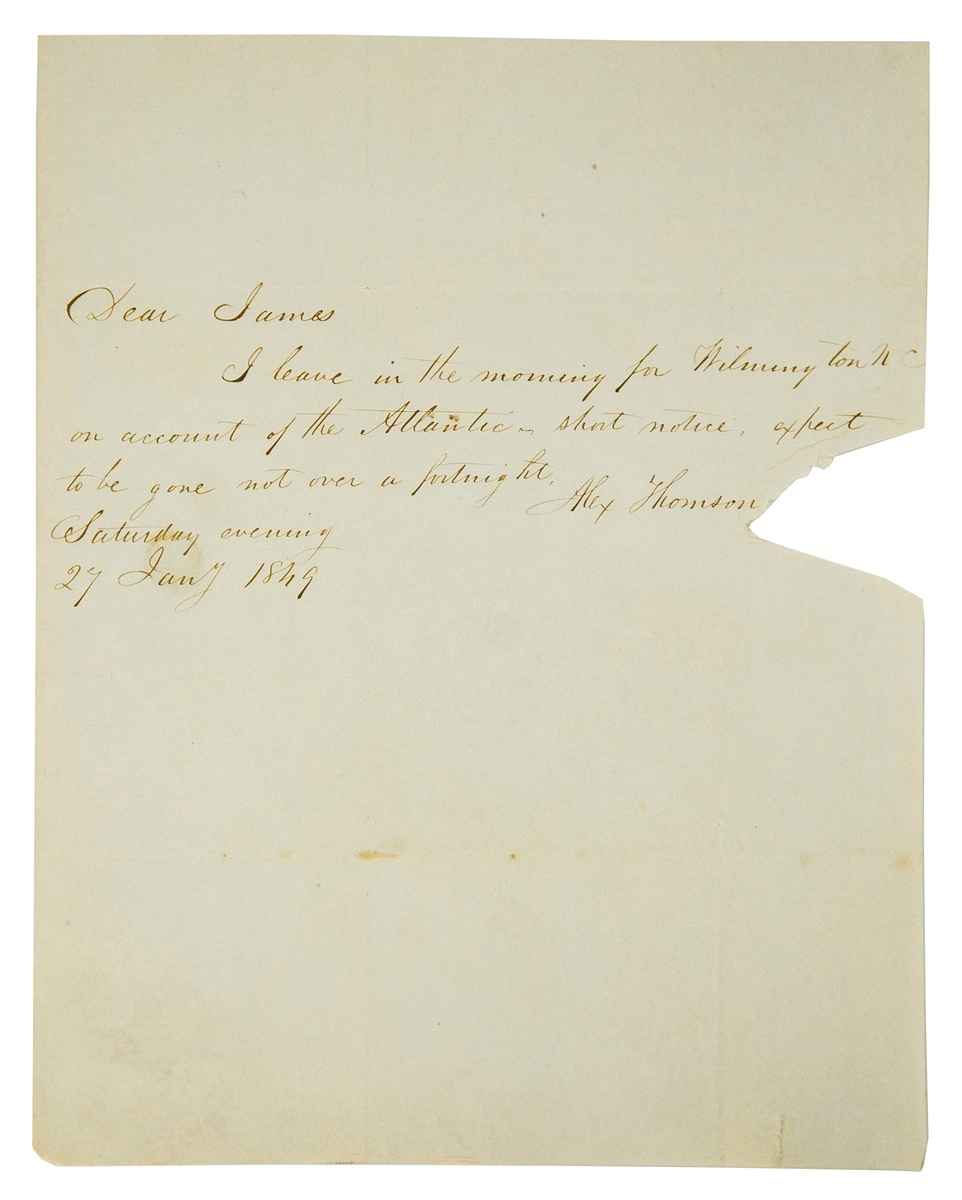 Dear James
I leave in the morning for Wilmington N C
on account of the Atlantic - short notice, expect
to be gone not over a fortnight,
Alex Thomson
Saturday evening
27 Jany 1849